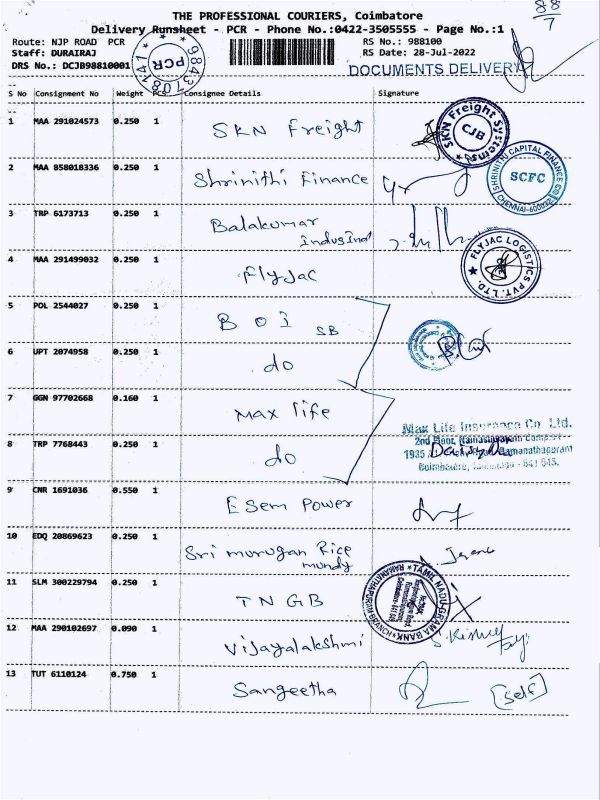 THE PROFESSIONAL COURIERS, Coimbatore
88
7
Delivery Runsheet - PCR - Phone No.:0422-3505555 - Page No.:1
Route: NJP ROAD PCR
RS No.: 988100
Staff: DURAIRAJ
RS Date: 28-Jul-2022
DRS No.: DCJB98810001
PCR
9843708141
DOCUMENTS DELIVERY
S No Consignment No Weight PCS Consignee Details Signature
1 MAA 291024573 0.250 1 SKN Freight
SKN Freight Systems
CJB
2 MAA 858018336 0.250 1 Shrinithi Finance
SHRINITHI CAPITAL FINANCE
SCFC
CHENNAI-600032
3 TRP 6173713 0.250 1 Balakumar
IndusInd
4 MAA 291499032 0.250 1 Flyjac
FLYJAC LOGISTICS PVT. LTD.
5 POL 2544027 0.250 1 BOI SB
6 UPT 2074958 0.250 1 do
7 GGN 97702668 0.160 1 Max life
Max Life Insurance Co. Ltd.
2nd Floor,
8 TRP 7768443 0.250 1 do
Ramanathapuram
Coimbatore, 641 045.
9 CNR 1691036 0.550 1 Esem Power
10 EDQ 20869623 0.250 1 Sri murugan Rice
mundy
11 SLM 300229794 0.250 1 TNGB
TAMIL NADU GRAMA BANK
RAMANATHAPURAM BRANCH
12 MAA 290102697 0.090 1 Vijayalakshmi
13 TUT 6110124 0.750 1 Sangeetha
[Self]